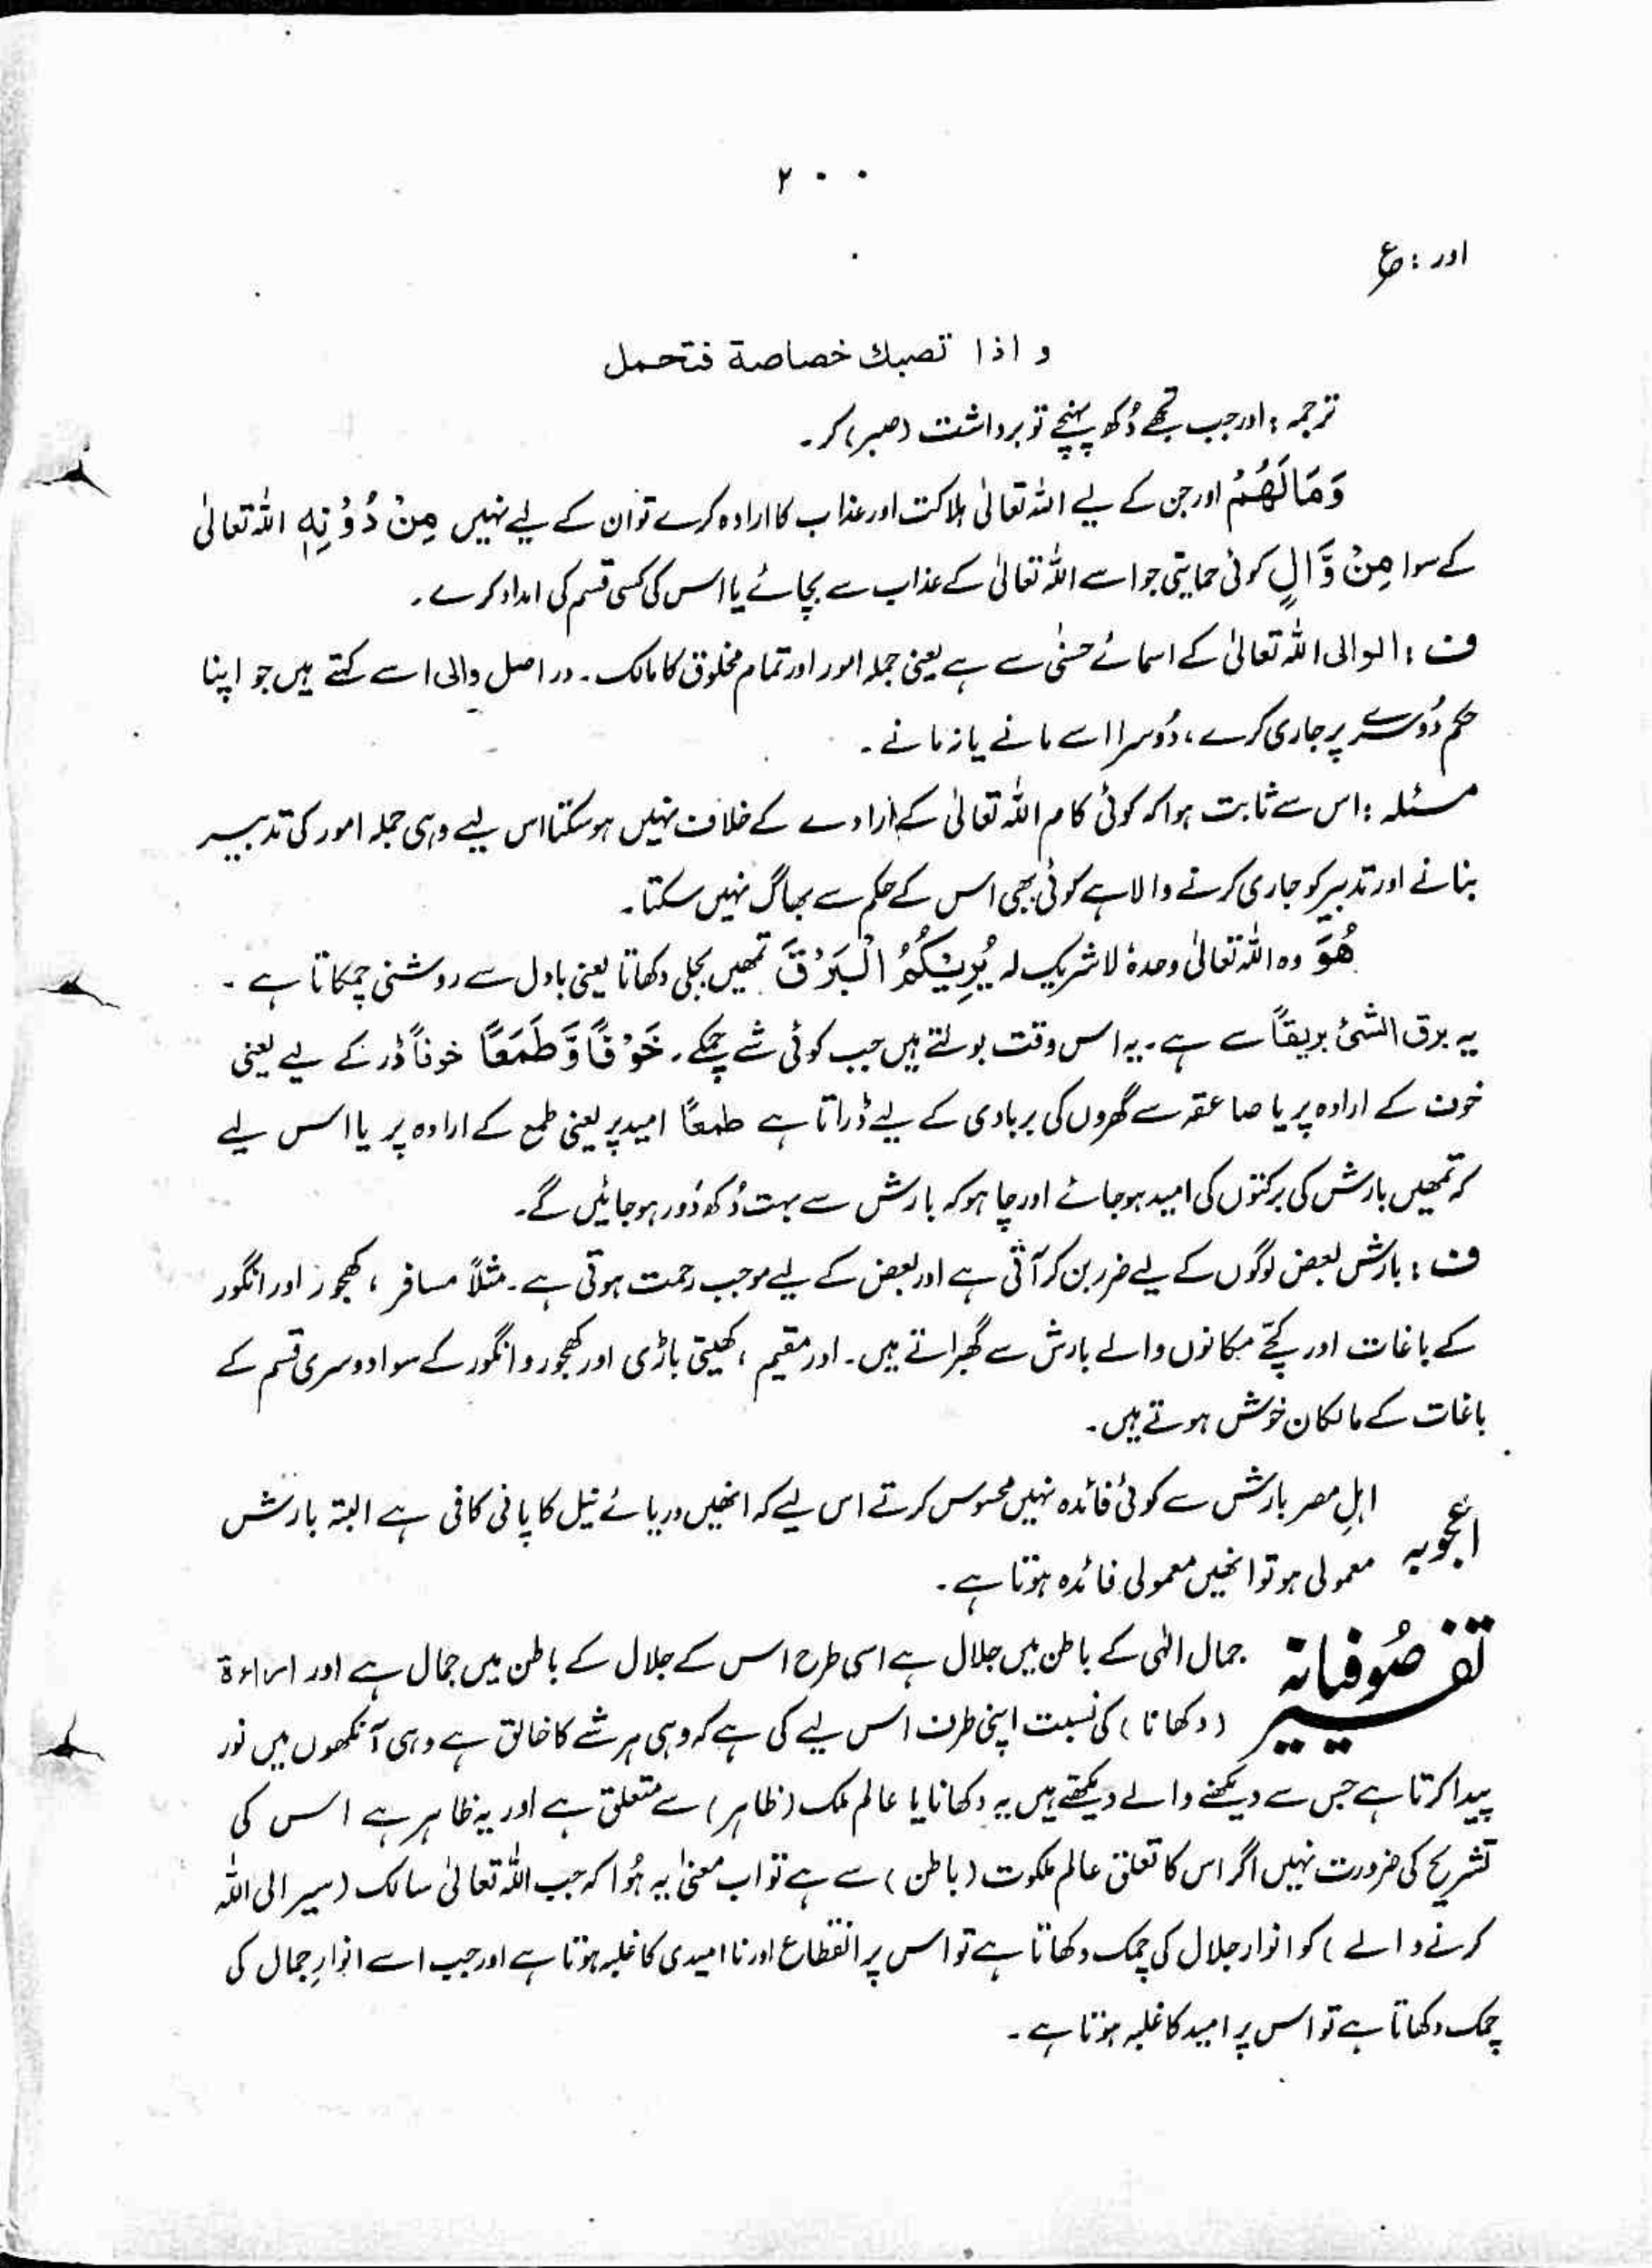 ۲۰۰
اور : ع
و اذا تصبك خصاصة فتحمل
ترجمہ : اور جب تجھے دُکھ پہنچے تو برداشت (صبر) کر ۔
وَمَا لَهُمْ اور جن کے لیے اللہ تعالیٰ ہلاکت اور عذاب کا ارادہ کرے تو ان کے لیے نہیں مِنْ دُوْنِهٖ اللہ تعالیٰ
کے سوا مِنْ وَّالٍ کوئی حمایتی جو اسے اللہ تعالیٰ کے عذاب سے بچائے یا اس کی کسی قسم کی امداد کرے ۔
ف : الوالی اللہ تعالیٰ کے اسمائے حسنٰی سے ہے یعنی جملہ امور اور تمام مخلوق کا مالک ۔ در اصل والی اسے کہتے ہیں جو اپنا
حکم دُوسرے پر جاری کرے ، دُوسرا اسے مانے یا نہ مانے ۔
مسئلہ : اس سے ثابت ہوا کہ کوئی کام اللہ تعالیٰ کے ارادے کے خلاف نہیں ہو سکتا اس لیے وہی جملہ امور کی تدبیر
بنانے اور تدبیر کو جاری کرنے والا ہے کوئی بھی اس کے حکم سے بھاگ نہیں سکتا ۔
هُوَ وہ اللہ تعالیٰ وحدہٗ لا شریک لہ یُرِیْكُمُ الْبَرْقَ تمھیں بجلی دکھاتا یعنی بادل سے روشنی چمکاتا ہے ۔
یہ برق الشئ بریقاً سے ہے ۔ یہ اس وقت بولتے ہیں جب کوئی شے چمکے ۔ خَوْفًا وَّ طَمَعًا خوفاً ڈر کے لیے یعنی
خوف کے ارادہ پر یا صاعقہ سے گھروں کی بربادی کے لیے ڈراتا ہے طمعاً امید پر یعنی طمع کے ارادہ پر یا اس لیے
کہ تمھیں بارش کی برکتوں کی امید ہو جائے اور چاہو کہ بارش سے بہت دُکھ دُور ہو جائیں گے ۔
ف : بارش بعض لوگوں کے لیے ضرر بن کر آتی ہے اور بعض کے لیے موجب رحمت ہوتی ہے ۔ مثلاً مسافر ، کھجور اور انگور
کے باغات اور کچّے مکانوں والے بارش سے گھبراتے ہیں ۔ اور مقیم ، کھیتی باڑی اور کھجور و انگور کے سوا دوسری قسم کے
باغات کے مالکان خوش ہوتے ہیں ۔
اعجوبہ اہلِ مصر بارش سے کوئی فائدہ نہیں محسوس کرتے اس لیے کہ انھیں دریائے نیل کا پانی کافی ہے البتہ بارش
معمولی ہو تو انھیں معمولی فائدہ ہوتا ہے ۔
تفسیر صُوفیانہ جمال الٰہی کے باطن میں جلال ہے اسی طرح اس کے جلال کے باطن میں جمال ہے اور اراءۃ
(دکھانا) کی نسبت اپنی طرف اس لیے کی ہے کہ وہی ہر شے کا خالق ہے وہی آنکھوں میں نور
پیدا کرتا ہے جس سے دیکھنے والے دیکھتے ہیں یہ دکھانا یا عالم ملک (ظاہر) سے متعلق ہے اور یہ ظاہر ہے اس کی
تشریح کی ضرورت نہیں اگر اس کا تعلق عالم ملکوت (باطن) سے ہے تو اب معنیٰ یہ ہُوا کہ جب اللہ تعالیٰ سالک (سیر الی اللہ
کرنے والے) کو انوار جلال کی چمک دکھاتا ہے تو اس پر انقطاع اور ناامیدی کا غلبہ ہوتا ہے اور جب اسے انوارِ جمال کی
چمک دکھاتا ہے تو اس پر امید کا غلبہ ہوتا ہے ۔